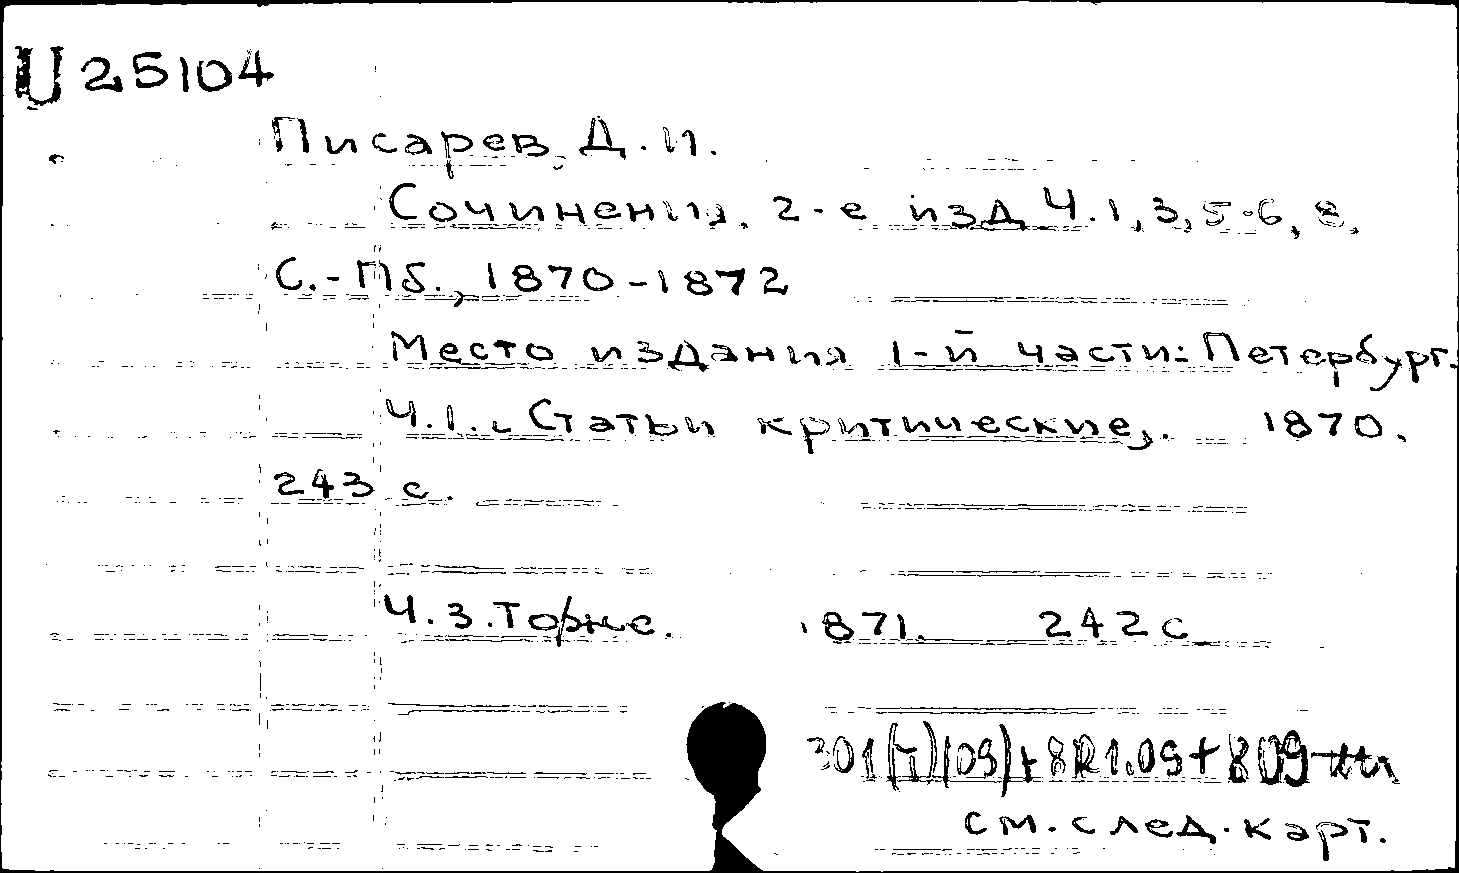 U 25104
Писарев, Д. И.
Сочинения. 2-е изд. Ч. 1, 3, 5-6, 8.
С.-Пб., 1870-1872
Место издания 1-й части: Петербург.
Ч. 1. Статьи критические. 1870.
243 с.
Ч. 3. То же. 1871. 242 с
+ 8R1.09 + 809
см. след. карт.